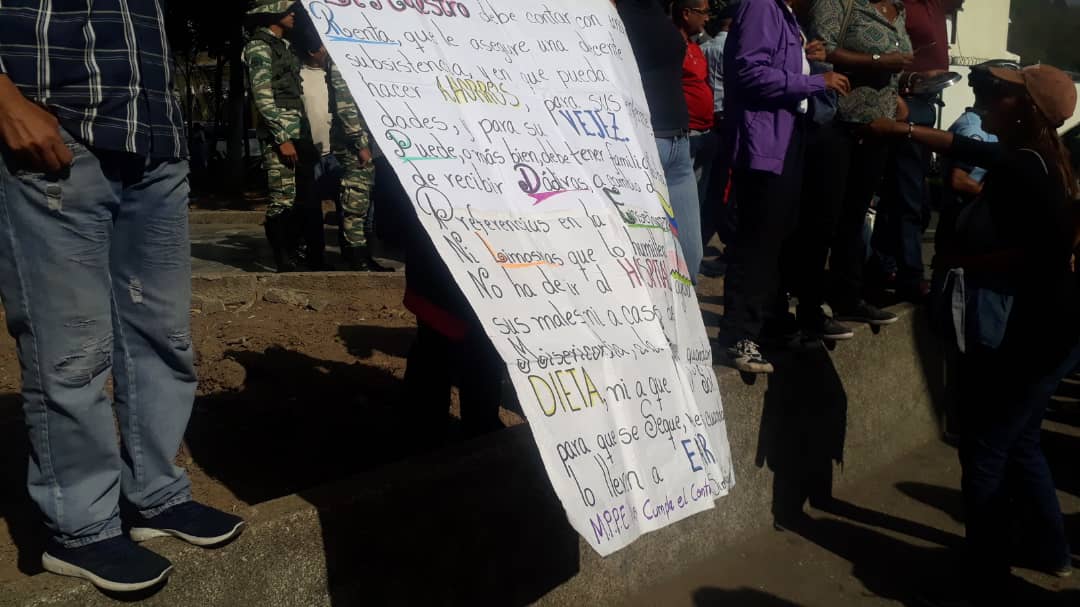 debe contar con una
Renta, que le asegure una decente
subsistencia, y en que pueda
hacer AHORROS, para sus enferme-
dades, y para su VEJEZ
Puede, o más bien, debe tener familia
de recibir Dádivas, a cambio de
Preferencias en la Enseñanza
Ni Limosnas que lo humillen
No ha de ir al HOSPITAL
sus males, ni a casa de
Misericordia
DIETA, ni a que
para que se Seque, ni
lo lleven a
M.P.P.E Cumpla el